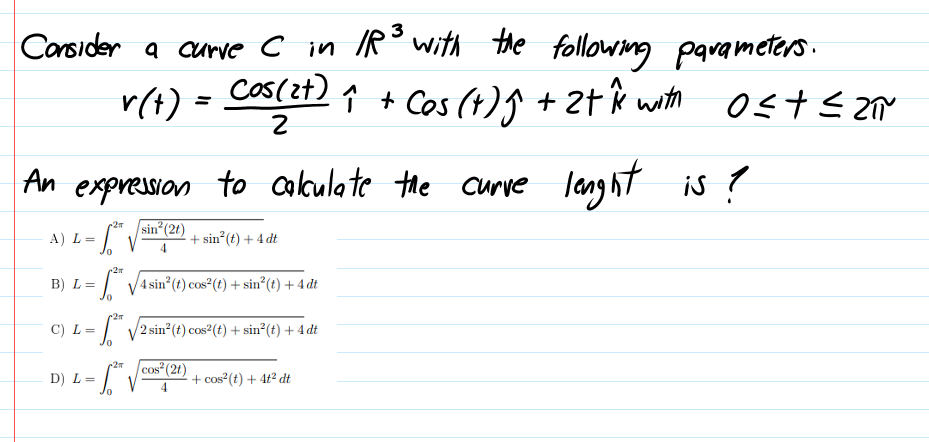 Consider a curve C in ℝ³ with the following parameters.
r(t) = cos(2t)/2 î + Cos(t)ĵ + 2t k̂ with 0 ≤ t ≤ 2π
An expression to calculate the curve lenght is ?
A) L = ∫₀^{2π} √(sin²(2t)/4 + sin²(t) + 4) dt
B) L = ∫₀^{2π} √(4 sin²(t) cos²(t) + sin²(t) + 4) dt
C) L = ∫₀^{2π} √(2 sin²(t) cos²(t) + sin²(t) + 4) dt
D) L = ∫₀^{2π} √(cos²(2t)/4 + cos²(t) + 4t²) dt